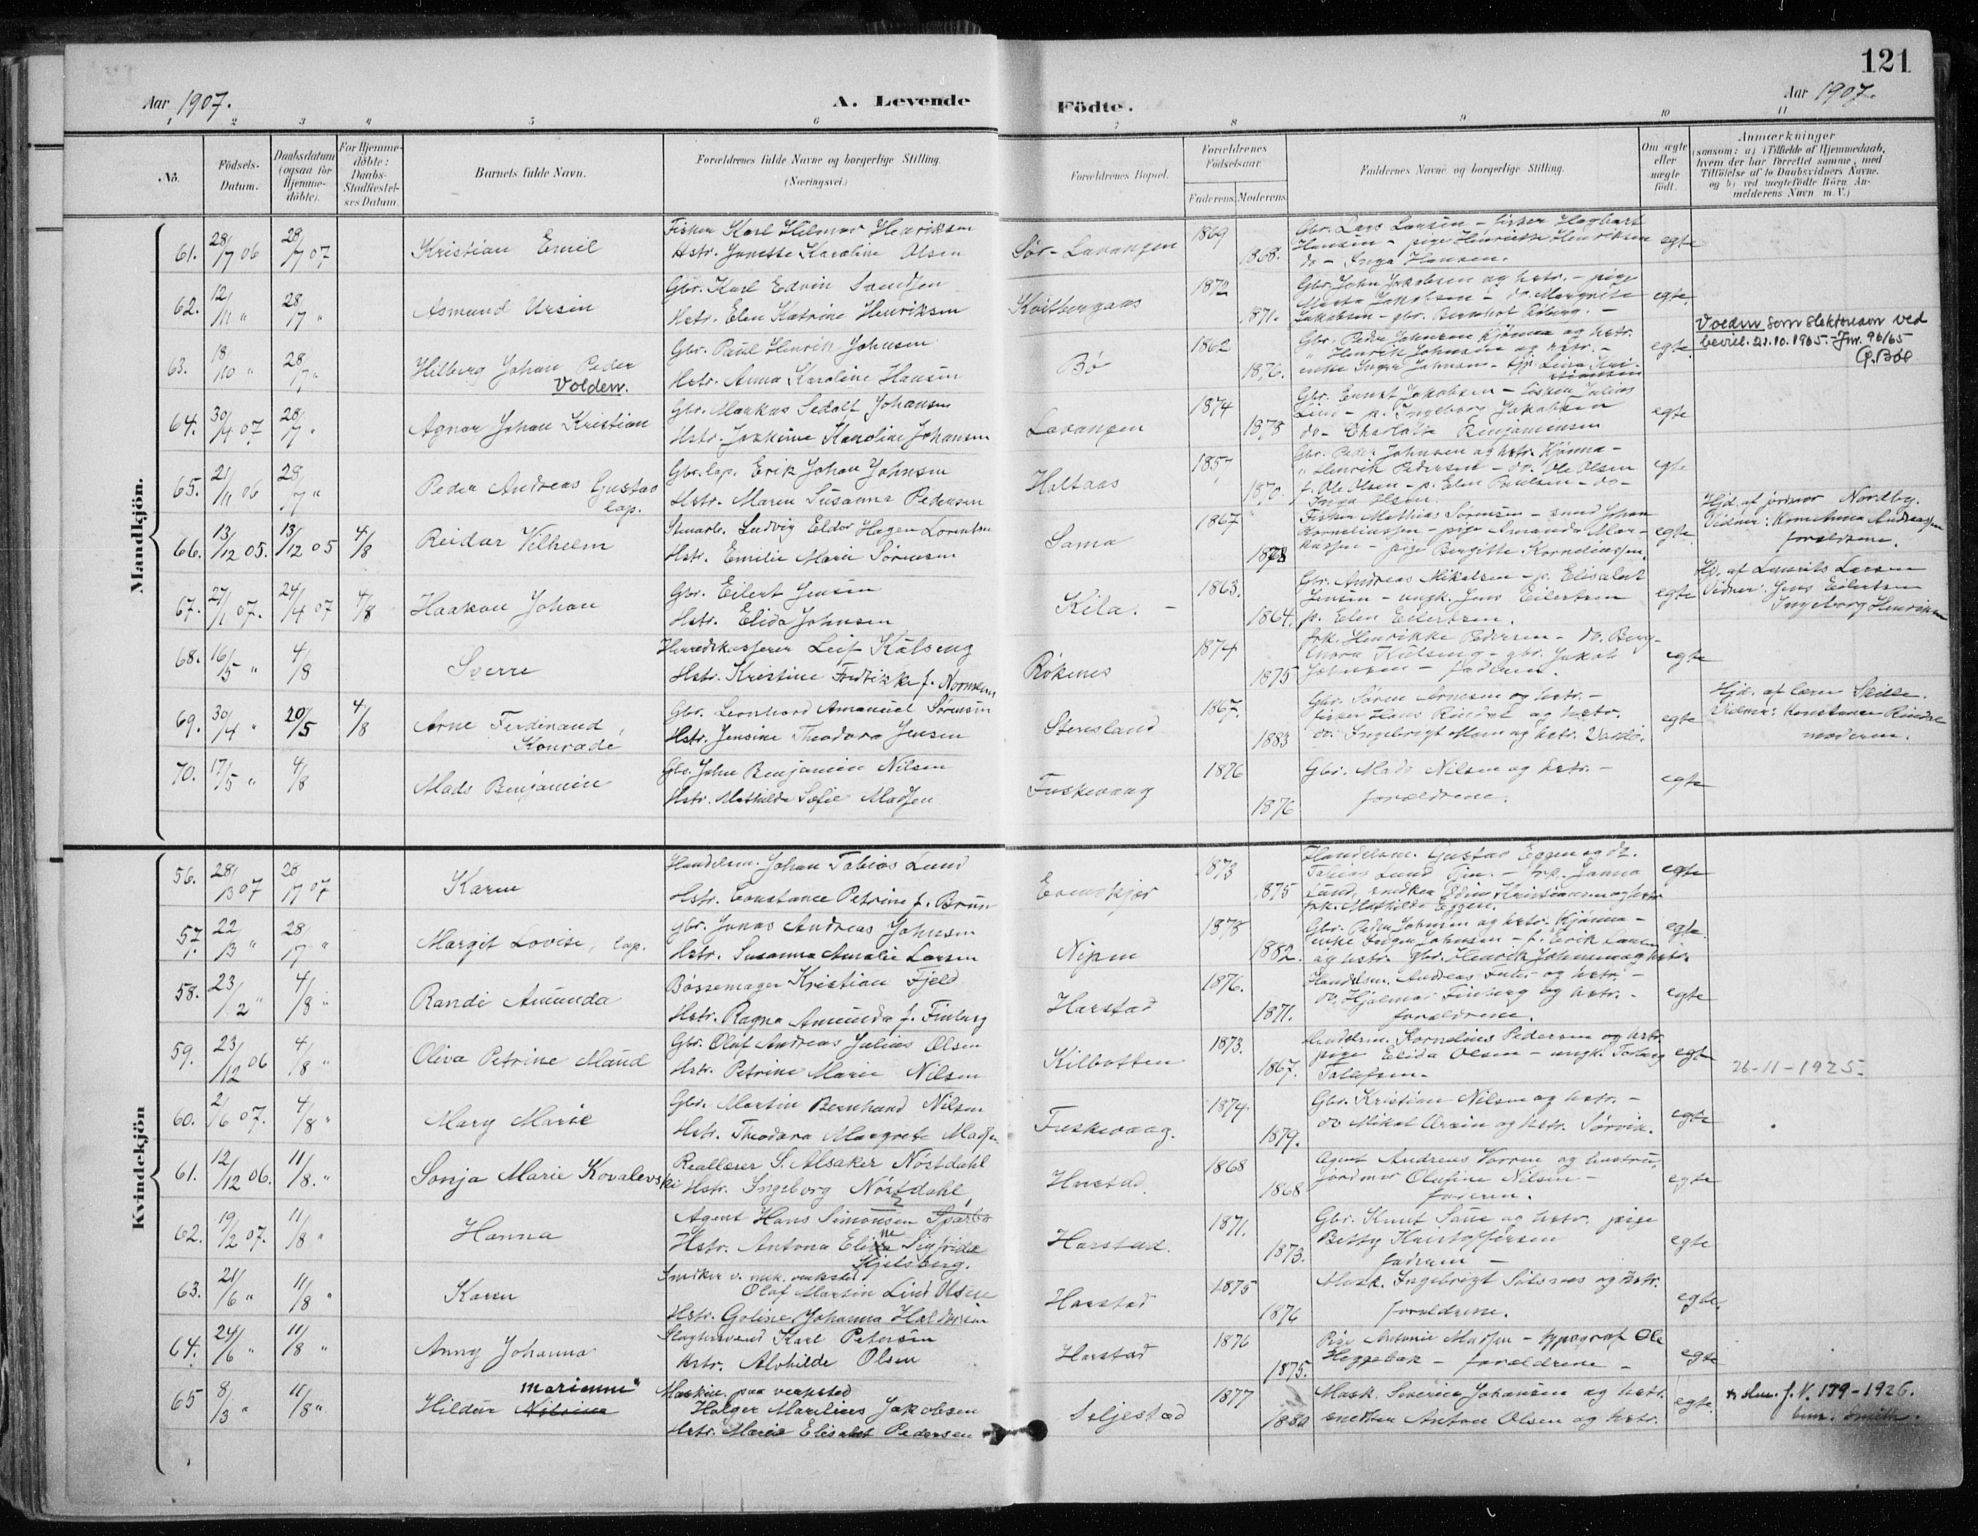 121
Aar 1907.
A. Levende
Födte.
Aar 1907.
1 2 3 4 5 6 7 8 9 10 11
No.
Födsels-
Datum.
Daabsdatum
(ogsaa for
Hjemme-
döbte).
For Hjemme-
döbte:
Daabs-
Stadfæstel-
ses Datum.
Barnets fulde Navn.
Forældrenes fulde Navne og borgerlige Stilling
(Næringsvei.)
Forældrenes Bopæl.
Forældrenes
Födselsaar.
Faderens. Moderens.
Faddernes Navne og borgerlige Stilling.
Om ægte
eller
uægte
födt.
Anmærkninger
(saasom: a) i Tilfælde af Hjemmedaab,
hvem der har forrettet samme, med
Tilföielse af to Daabsvidners Navne,
og b) ved uægtefödte Börn An-
melderens Navn m. V.)
Mandkjön.
61. 28/7 06 28/7 07 Kristian Emil
Fisker Karl Hilmar Henriksen
Hstr. Jonette Karoline Olsen
Sør-Lavangen 1869 1868.
Gbr. Lars Larsen - fisker Hagbart
Hansen - pige Henriette Henriksen
do - Inga Hansen.
egte
62. 12/11 " 28/7 " Asmund Ursin
Gbr. Karl Edvin Samdsen
Hstr. Elen Katrine Henriksen
Kvitbergaas 1872 1871.
Gbr. John Jakobsen og hstr. - pige
Marta Jakobsen - do. Margrete
Jakobsen - gbr. Bernhof
egte.
63. 18/10 " 28/7 " Hilberg Johan Peder
Volden.
Gbr. Paul Henrik Johnsen
Hstr. Anna Karoline Hansen
Bø 1862 1876.
Gbr. Peder Johnsen Kjønna og hstr.
" Henrik Johnsen og hstr. -
enke Inger Johnsen - Lina Kri-
stiansen
egte.
Volden som slektsnavn ved
bevill. 21.10.1965. - Jnr. 96/65
G. Bøe
64. 30/4 07. 28/7 " Agnar Johan Kristian
Gbr. Markus Sedolf Johansen
Hstr. Joakime Karoline Johansen
Lavangen 1874 1878
Gbr. Ernst Jakobsen - fisker Julius
Lind - p. Ingeborg Jakobsen
do - Charlotte Benjaminsen
egte
65. 21/11 06 28/7 " Peder Andreas Gustav
lap.
Gbr. lap. Erik Johan Johnsen
Hstr. Maren Susanna Pedersen
Holtaas 1857 1870.
Gbr. Peder Johnsen og hstr. Kjønna -
" Henrik Pedersen - do. Ole Olsen
f. Ole Olsen - p. Elen Paulsen - do -
Inga Olsen.
egte
66. 13/12 05. 13/12 05 4/8 Reidar Vilhelm
Stuearb. Ludvig Eldor Hagen Lorentsen
Hstr. Emilie Marie Sørensen
Sama 1867 1873
Fisker Mathias Sørensen - smed Johan
Korneliussen - pige Amanda Mar-
kussen - pige Bergitte Korneliussen.
egte.
Hjd. af jordmor Nordby.
Vidner: Konstanse Andreassen
forældrene.
67. 27/1 07. 24/4 07 4/8 Haakon Johan
Gbr. Eilert Jensen
Hstr. Elida Johnsen
Kila. - 1863. 1864.
Gbr. Andreas Mikalsen - p. Elisabet
Jensen - ungk. Jens Eilertsen
p. Elen Eilertsen.
egte
Hjd. af Laurits Larsen
Vidner: Jens Eilertsen
Ingeborg Henriksen
68. 16/5 " 4/8 Sverre
Herredskasserer Leif Kulseng
Hstr. Kristine Fredrikke f. Normann
Røkenes 1874 1875
frk. Henrikke Pedersen - do. Berg-
thora Kulseng - gbr. Jakob
Johnsen - faderen.
egte
69. 30/4 " 20/5 4/8 Arne Ferdinand
Konrade
Gbr. Leonhard Amanuel Sørensen
Hstr. Jensine Theodora Jensen
Stensland 1867. 1883
Gbr. Søren Arnesen og hstr. -
fisker Hans Rindal og hstr.
do. Ingebrigt Moen og hstr. Vardø.
egte
Hjd. af lærer Skille.
Vidner: Konstance Rindal
moderen.
70. 17/5 " 4/8 Mads Benjamin
Gbr. John Benjamin Nilsen
Hstr. Mathilde Sofie Madsen
Fuskevaag 1876 1876
Gbr. Mads Nilsen og hstr. -
forældrene.
egte
Kvindekjön
56. 28/3 07 28/7 07 Karen
Handelsm. Johan Tobias Lund
Hstr. Constance Petrine f. Brun
Evenskjer 1873 1875
Handelsm. Gustav Eggen og do.
Tobias Lund - frk. Janna
Lund, Edin Kristiansen og hstr
frk. Mathilde Eggen.
egte
57. 22/3 " 28/7 " Margit Lovise, lap.
Gbr. Jonas Andreas Johnsen
Hstr. Susanna Amalie Larsen
Nipen 1878 1882.
Gbr. Peder Johnsen og hstr. Kjønna -
enke Inger Johnsen - f. Erik Larsen
og hstr. gbr. Henrik Johnsen og hstr.
egte.
58. 23/12 " 4/8 " Randi Amunda
Bøssemager Kristian Fjeld
Hstr. Ragna Amunda f. Finberg
Harstad 1876. 1871.
Handelsm. Andreas og hstr. -
do. Hjalmar Finberg og hstr. -
forældrene.
egte
59. 23/12 06 4/8 " Oliva Petrine Maud
Gbr. Olaf Andreas Julius Olsen
Hstr. Petrine Maren Nilsen
Kilbotten 1873. 1867.
Handelsm. Kornelius Pedersen og hstr.
pige Elida Olsen - ungk. Torberg
Tollefsen -
egte
26-11-1925.
60. 2/6 07. 4/8 " Mary Marie
Gbr. Martin Bernhard Nilsen
Hstr. Theodora Margrete Madsen
Fuskevaag. 1874 1879.
Gbr. Kristian Nilsen og hstr. -
do Mikal Ursin og hstr. Sørvik.
egte
61. 12/12 06. 11/8. " Sonja Marie Kovalevski
Reallærer S. Alsaker Nøstdahl
Hstr. Ingeborg Nøstdahl,
Harstad. 1868 1868
Agent Andreas Vorren og hustru,
jordmor Olufine Nilsen -
faderen.
egte
62. 19/2 07. 11/8 " Hanna
Agent Hans Simonsen Sparbo
Hstr. Antona Eline Sigfrida
Kjelsberg.
Harstad. 1871. 1873.
Gbr. Knut Saue og hstr. pige
Betty Kristoffersen
faderen -
egte
63. 21/6 " 11/8 " Karen
Snedker v. mek. verksted
Olaf Martin Lind Olsen
Hstr. Goline Johanna Haldorsen
Harstad 1875 1876
Mask. Ingebrigt og hstr.
forældrene.
egte.
64. 24/6 " 11/8 " Anny Johanna
Slagtersvend Karl Petersen
Hstr. Alvhilde Olsen
Harstad 1876 1875.
Pige Antonie Madsen - typograf Ole
Heggebak - forældrene -
egte
65 8/3 " 11/8 " Hildur Nilsine Marienne"
Maskin. paa verksted
Holger Marelius Jakobsen
Hstr. Marie Elisabet Pedersen
Seljestad 1877 1880
Mask. Severin Johansen og hstr.
snedker Anton Olsen og hstr.
egte.
f. V. 179-1926.